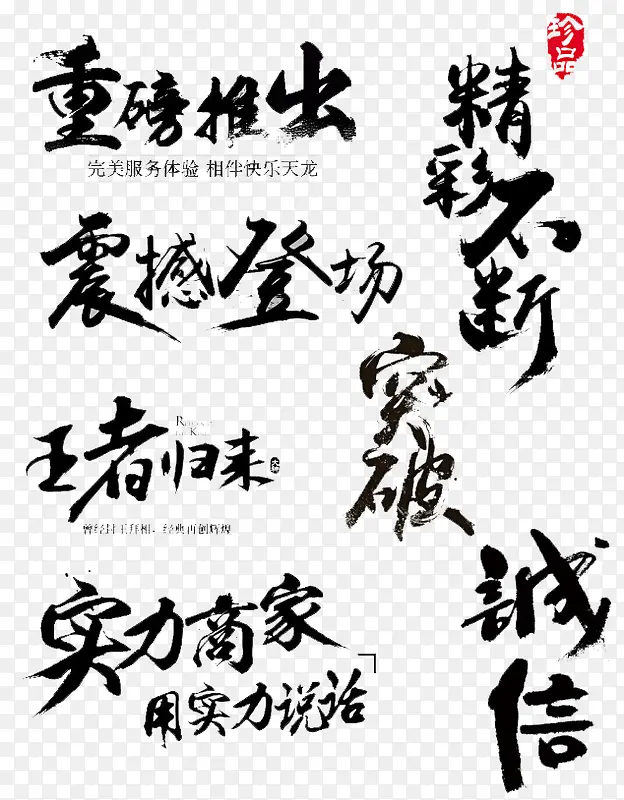 珍品
重磅推出
完美服务体验 相伴快乐天龙
精彩不断
震撼登场
突破
王者归来
曾经封王拜相，经典再创辉煌
誠信
实力商家
用实力说话